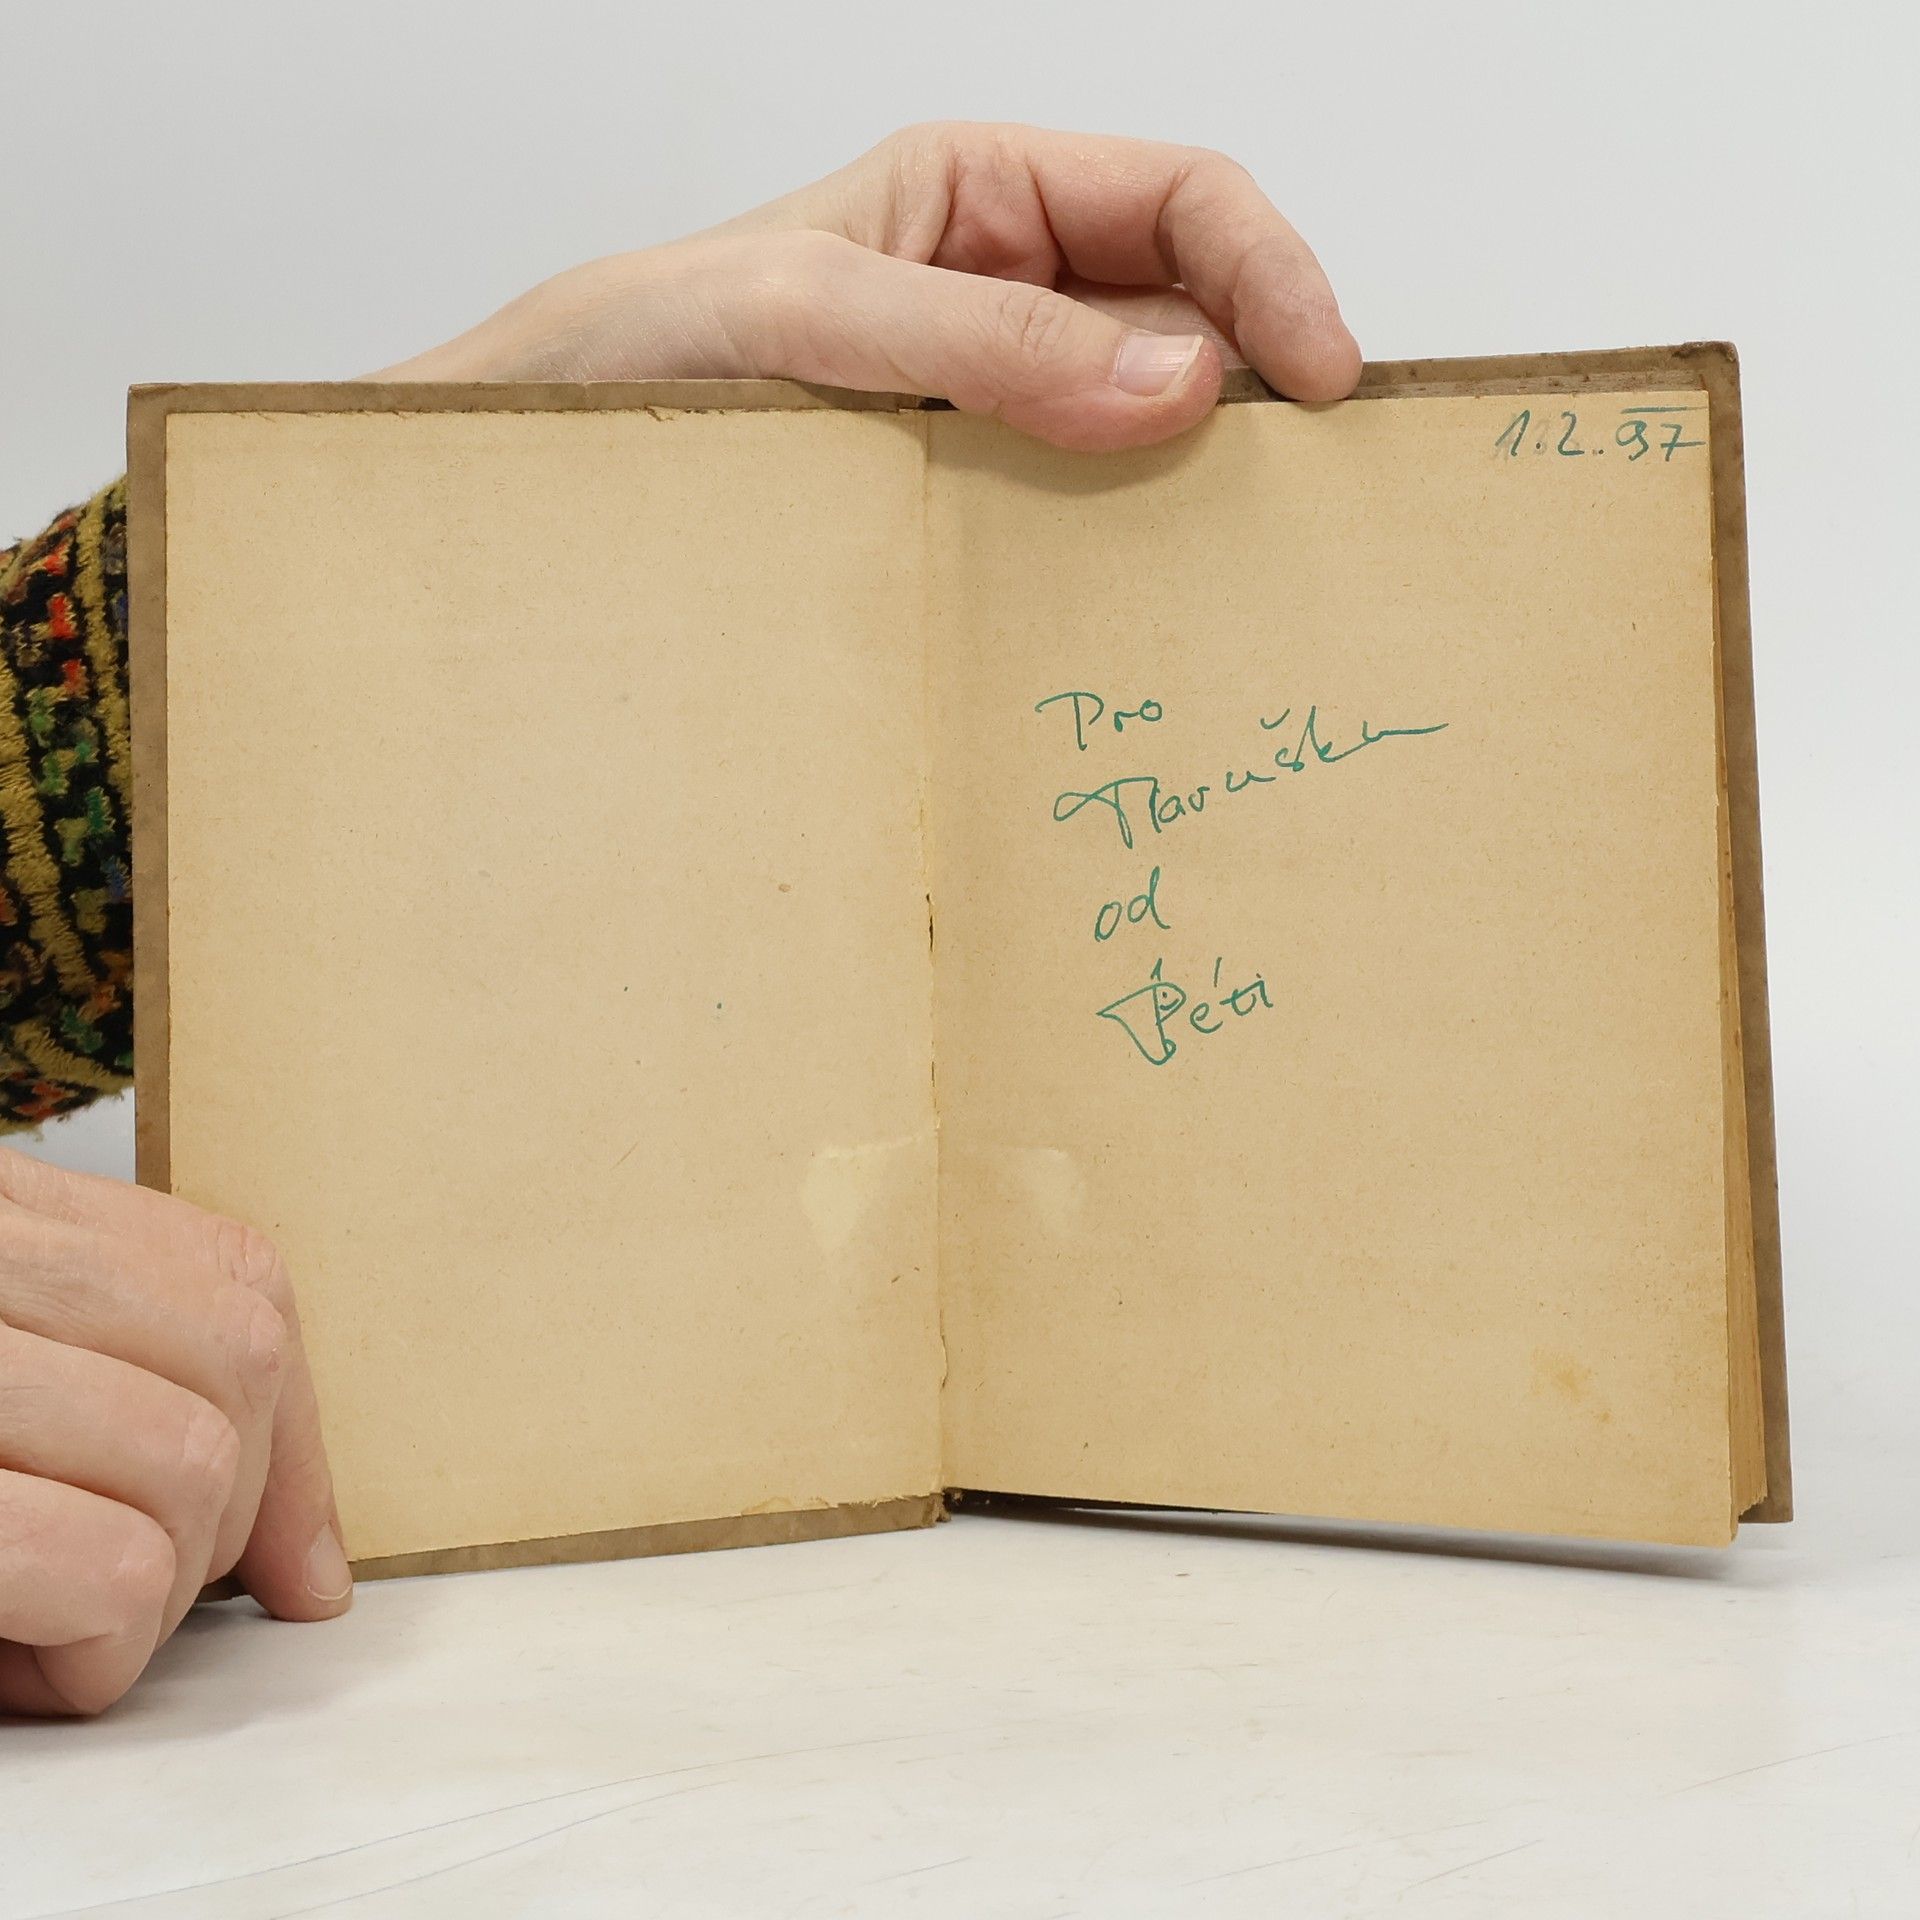 1.2.97
Pro
Marušku
od
Péti